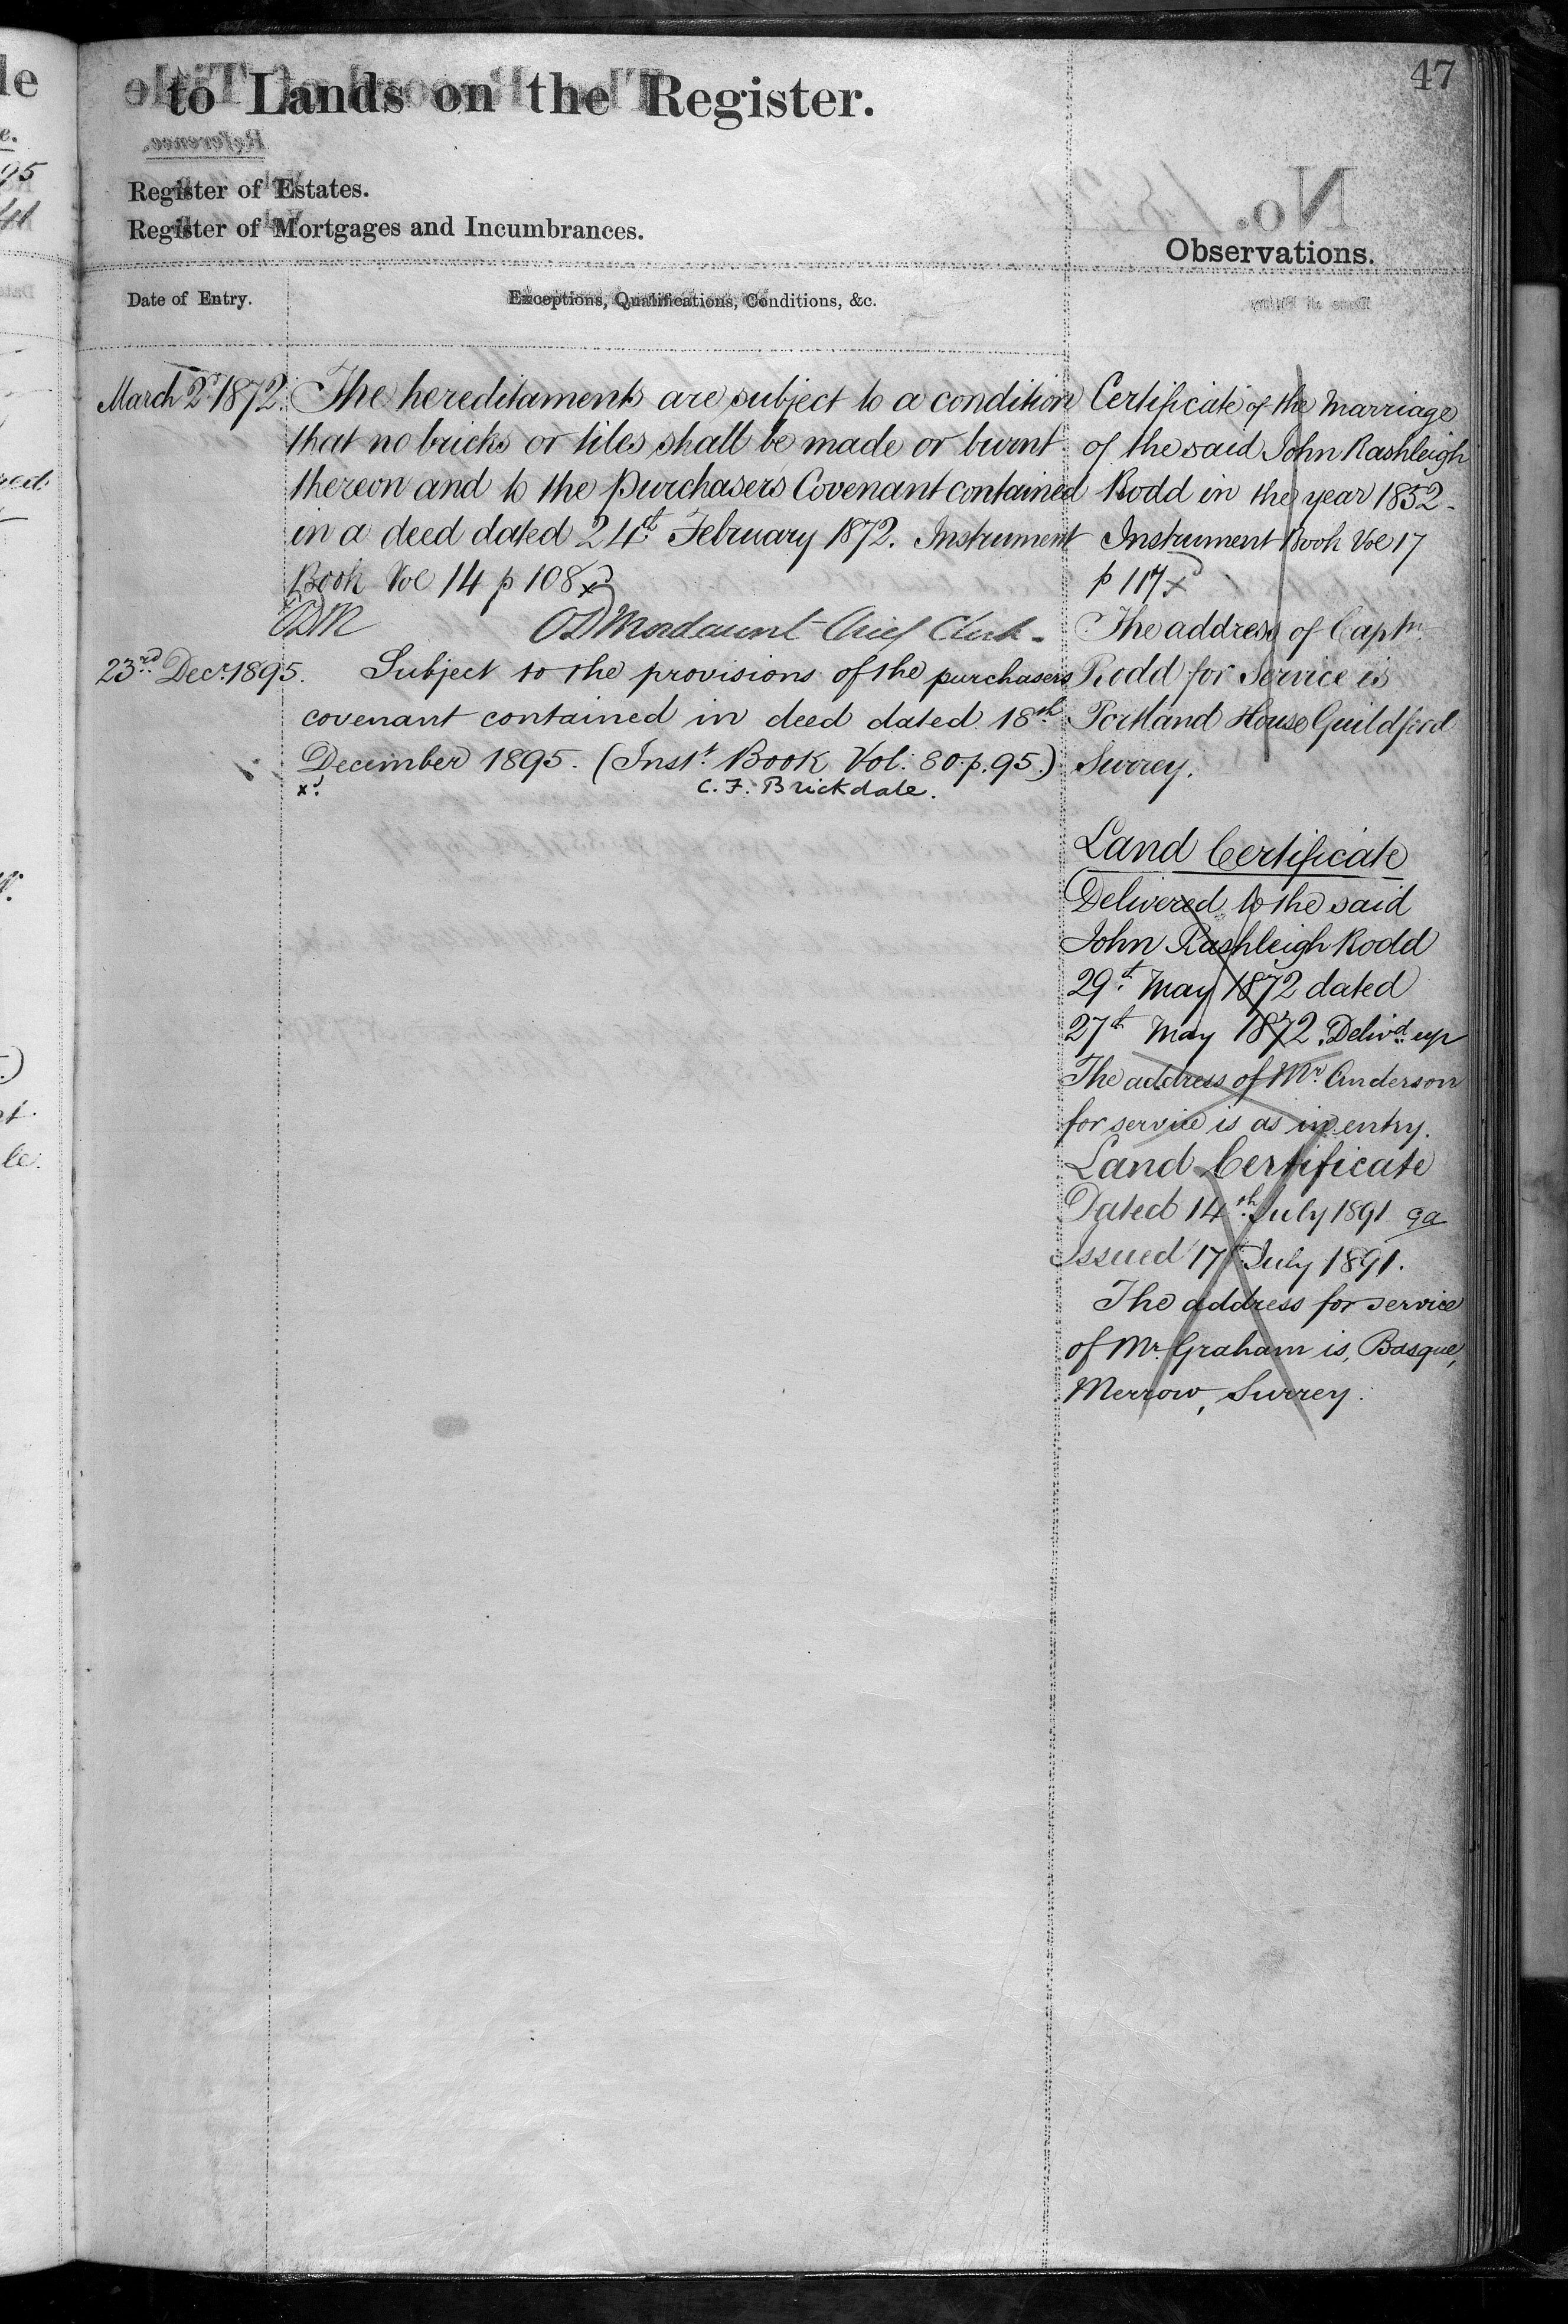 47
to Lands on the Register.
Register of Estates.
Register of Mortgages and Incumbrances.
Observations.
Date of Entry.
Exceptions, Qualifications, Conditions, &c.
March 2d 1872.
The hereditaments are subject to a condition
that no bricks or tiles shall be made or burnt
thereon and to the purchasers Covenant contained
in a deed dated 24th February 1872. Instrument
Book Vol 14 p 108 x
ODM
OD Mordaunt Chief Clerk.
23rd Decr. 1895.
Subject to the provisions of the purchasers
covenant contained in deed dated 18th
December 1895. (Inst. Book Vol: 80 p. 95.)
x
C. F. Brickdale.
Certificate of the Marriage
of the said John Rashleigh
Rodd in the year 1852.
Instrument Book Vol 17
p 117 x
The address of Captn.
Rodd for Service is
Portland House Guildford
Surrey.
Land Certificate
Delivered to the said
John Rashleigh Rodd
29th May 1872 dated
27th May 1872. Delivd. up
The address of Mr. Anderson
for service is as in entry.
Land Certificate
Dated 14th July 1891
Issued 17th July 1891.
The address for service
of Mr. Graham is, Basque,
Merrow, Surrey.